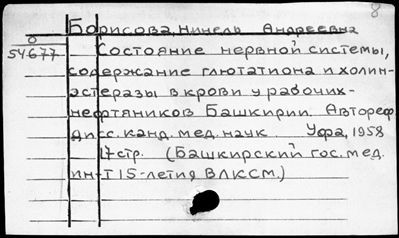 8
Борисова, Нинель Андреевна
0
54677
Состояние нервной системы,
содержание глютатиона и холин-
эстеразы в крови у рабочих-
нефтяников Башкирии. Автореф.
дисс. канд. мед. наук. Уфа, 1958
17 стр. (Башкирский гос. мед.
ин-т 15-летия ВЛКСМ.)